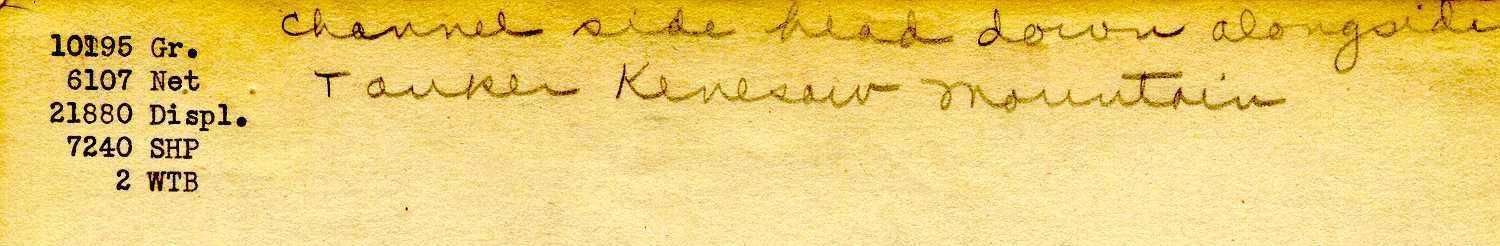 channel side head down alongside
Tanker Kenesaw Mountain
10195 Gr.
6107 Net
21880 Displ.
7240 SHP
2 WTB